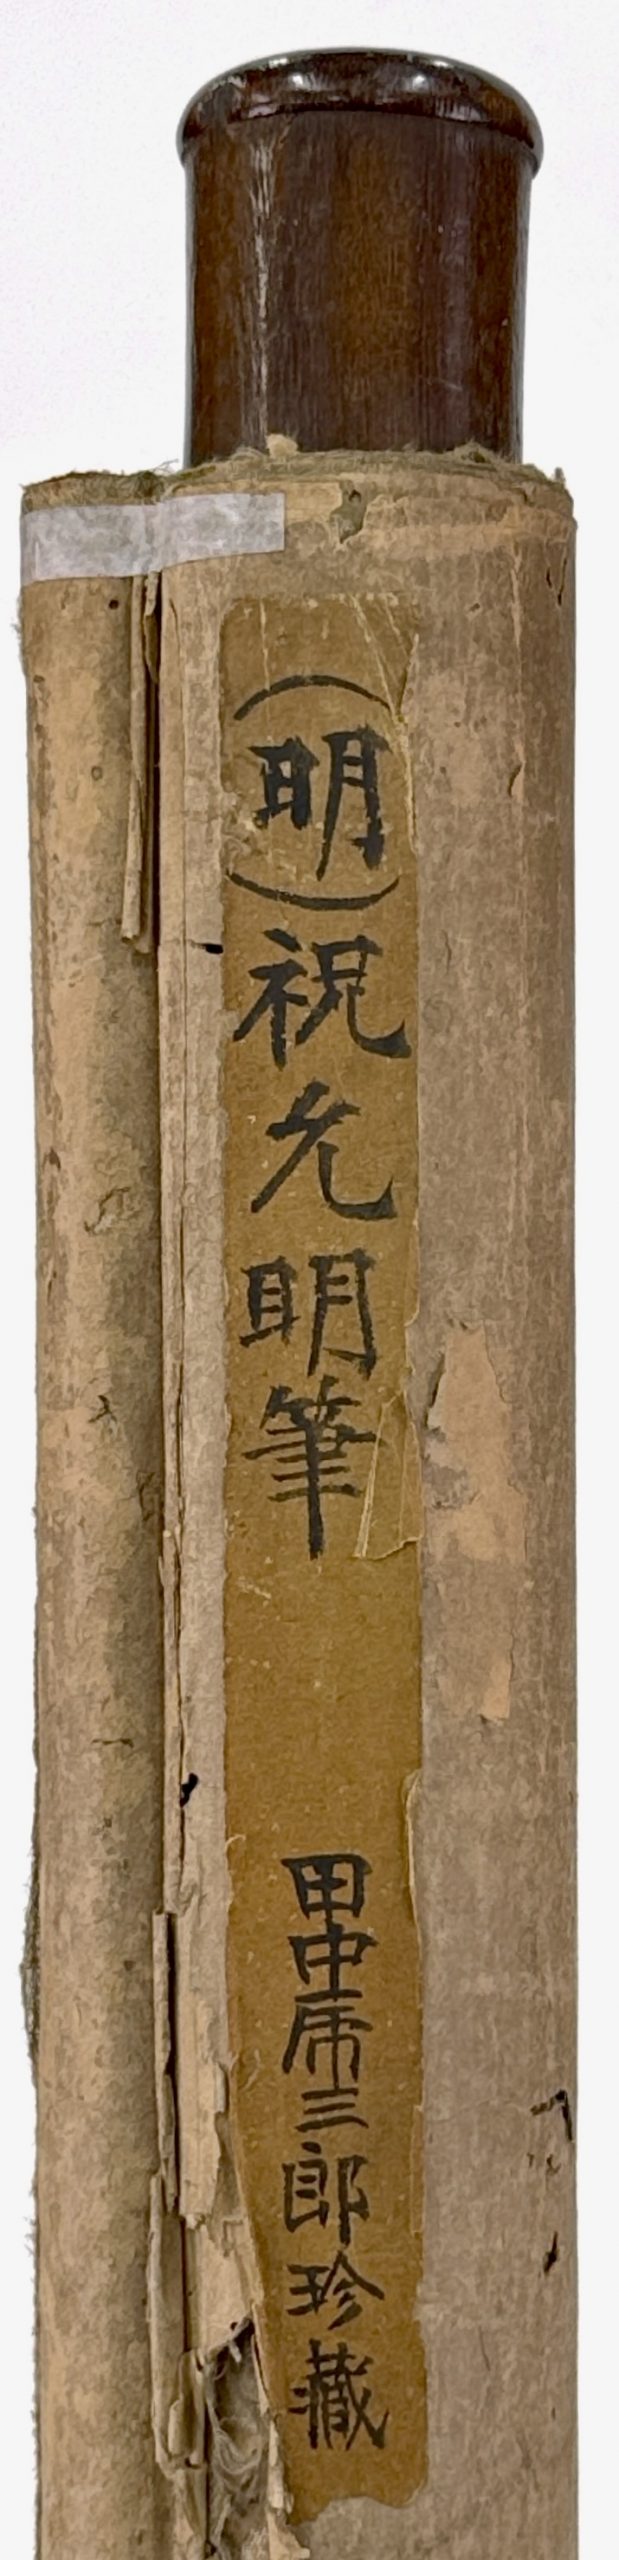 （明）祝允明筆 田中乕三郎珍藏